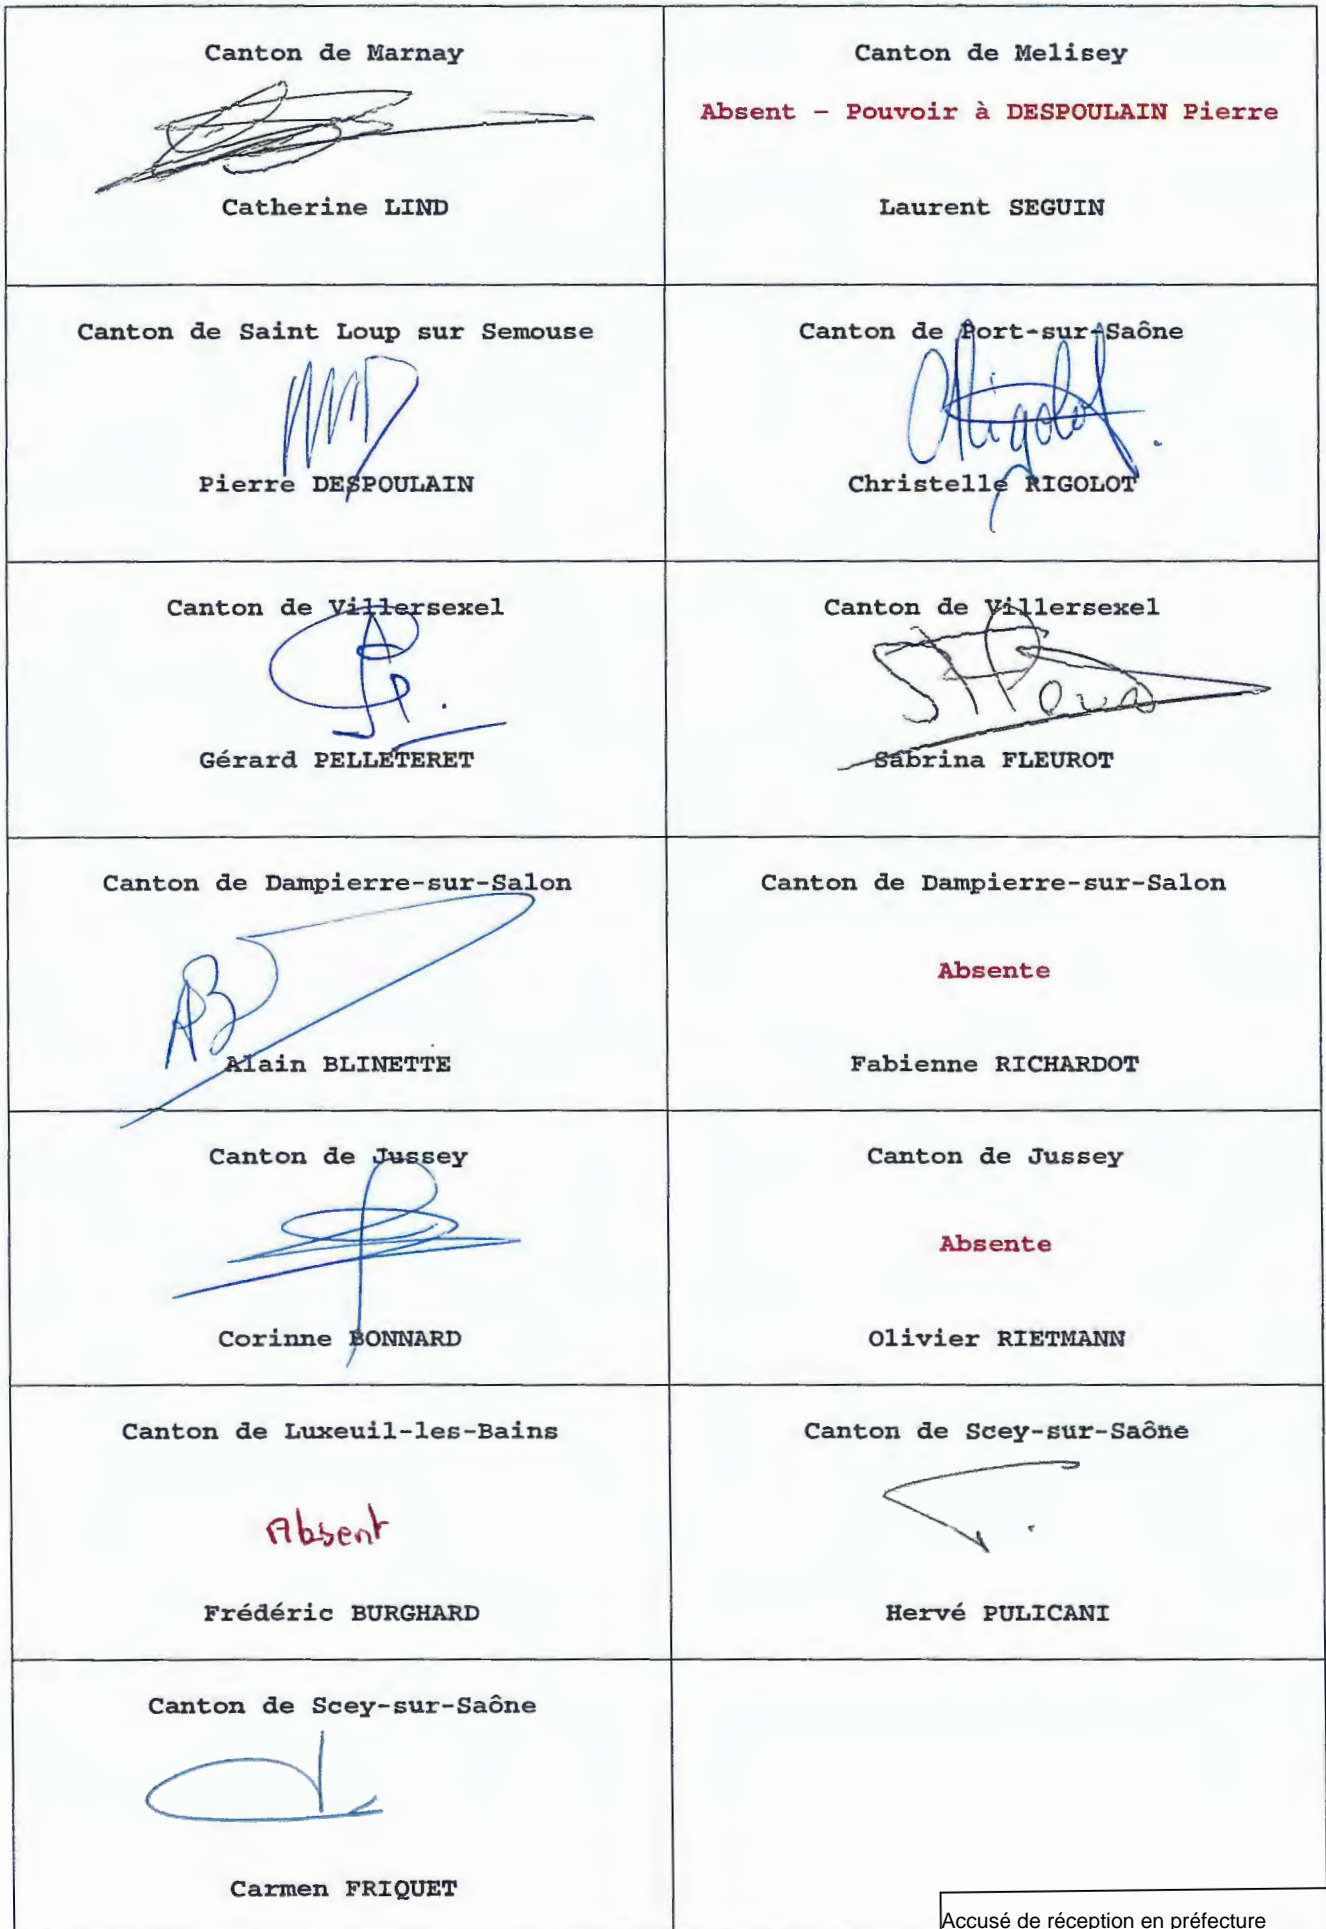 Canton de Marnay
Catherine LIND
Canton de Melisey
Absent – Pouvoir à DESPOULAIN Pierre
Laurent SEGUIN
Canton de Saint Loup sur Semouse
Pierre DESPOULAIN
Canton de Port-sur-Saône
Christelle RIGOLOT
Canton de Villersexel
Gérard PELLETERET
Canton de Villersexel
Sabrina FLEUROT
Canton de Dampierre-sur-Salon
AB
Alain BLINETTE
Canton de Dampierre-sur-Salon
Absente
Fabienne RICHARDOT
Canton de Jussey
Corinne BONNARD
Canton de Jussey
Absente
Olivier RIETMANN
Canton de Luxeuil-les-Bains
Absent
Frédéric BURGHARD
Canton de Scey-sur-Saône
Hervé PULICANI
Canton de Scey-sur-Saône
Carmen FRIQUET
Accusé de réception en préfecture